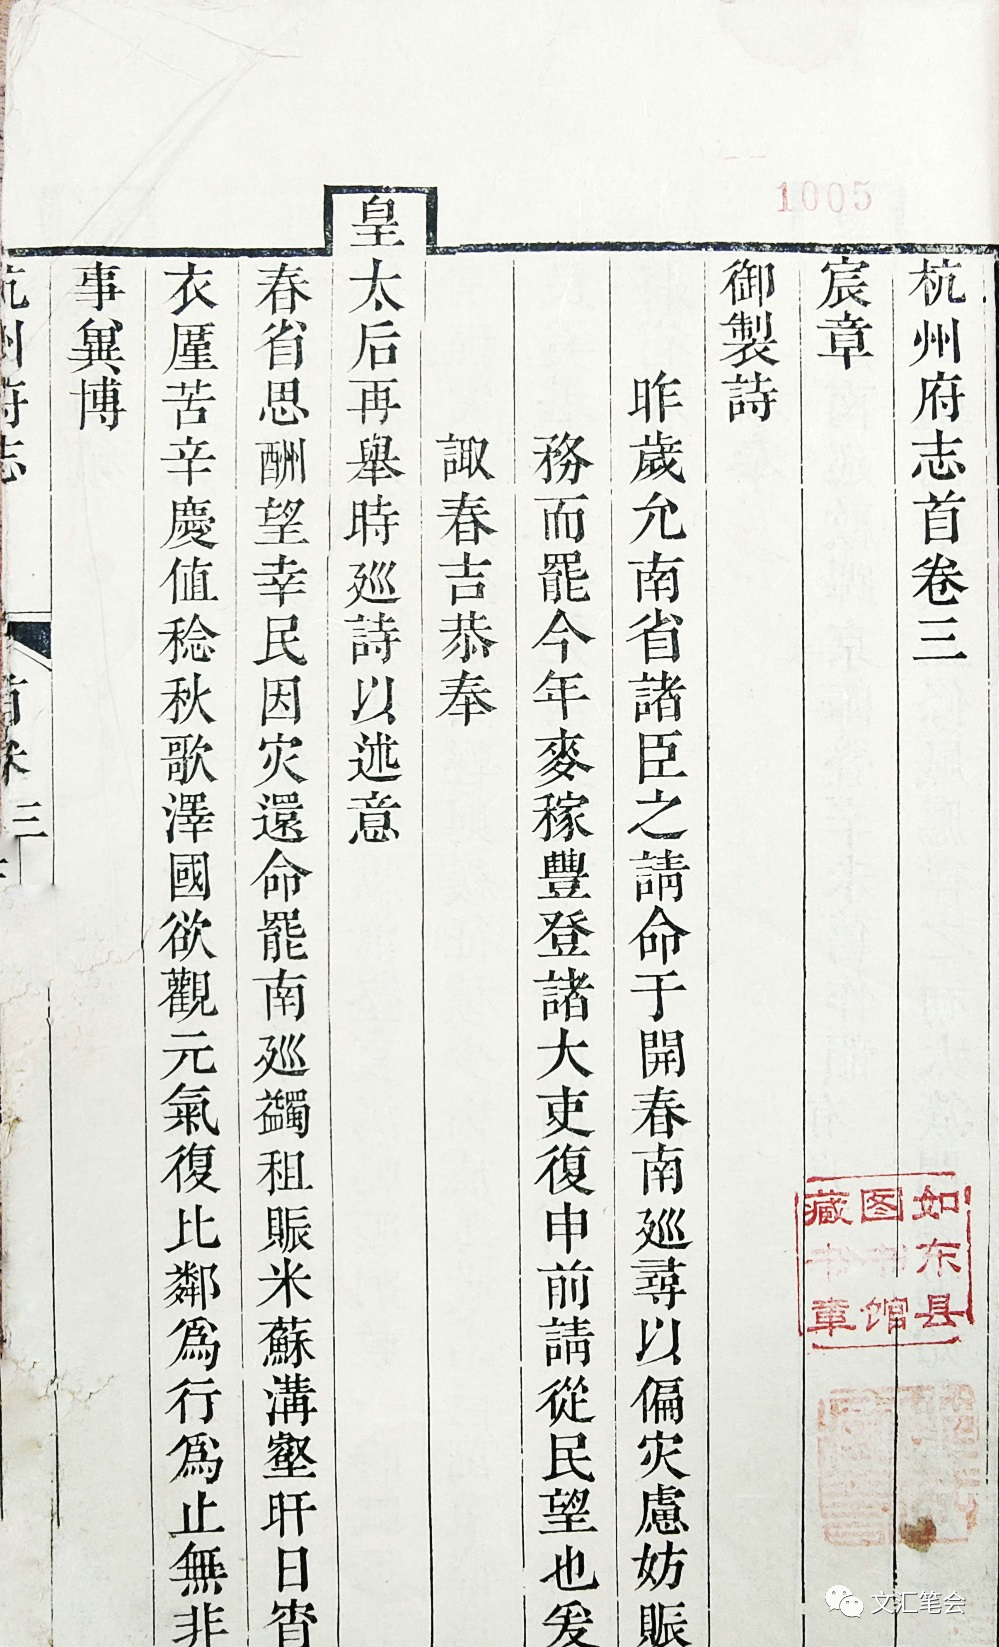 1005
杭州府志首卷三
宸章
御製詩
昨歲允南省諸臣之請命于開春南廵尋以偏灾慮妨賑
務而罷今年麥稼豐登諸大吏復申前請從民望也爰
諏春吉恭奉
皇太后再舉時廵詩以述意
春省思酬望幸民因灾還命罷南廵蠲租賑米蘇溝壑旰日宵
衣厪苦辛慶値稔秋歌澤國欲觀元氣復比鄰爲行爲止無非
事兾博
杭州府志
首卷三
如东县
图书馆
藏书章
文汇笔会